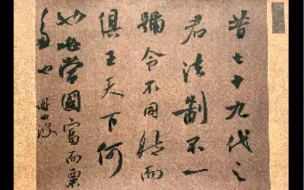 昔七十九代之
君法制不一
號令不同然而
俱王天下何
也必當國富而粟
多也